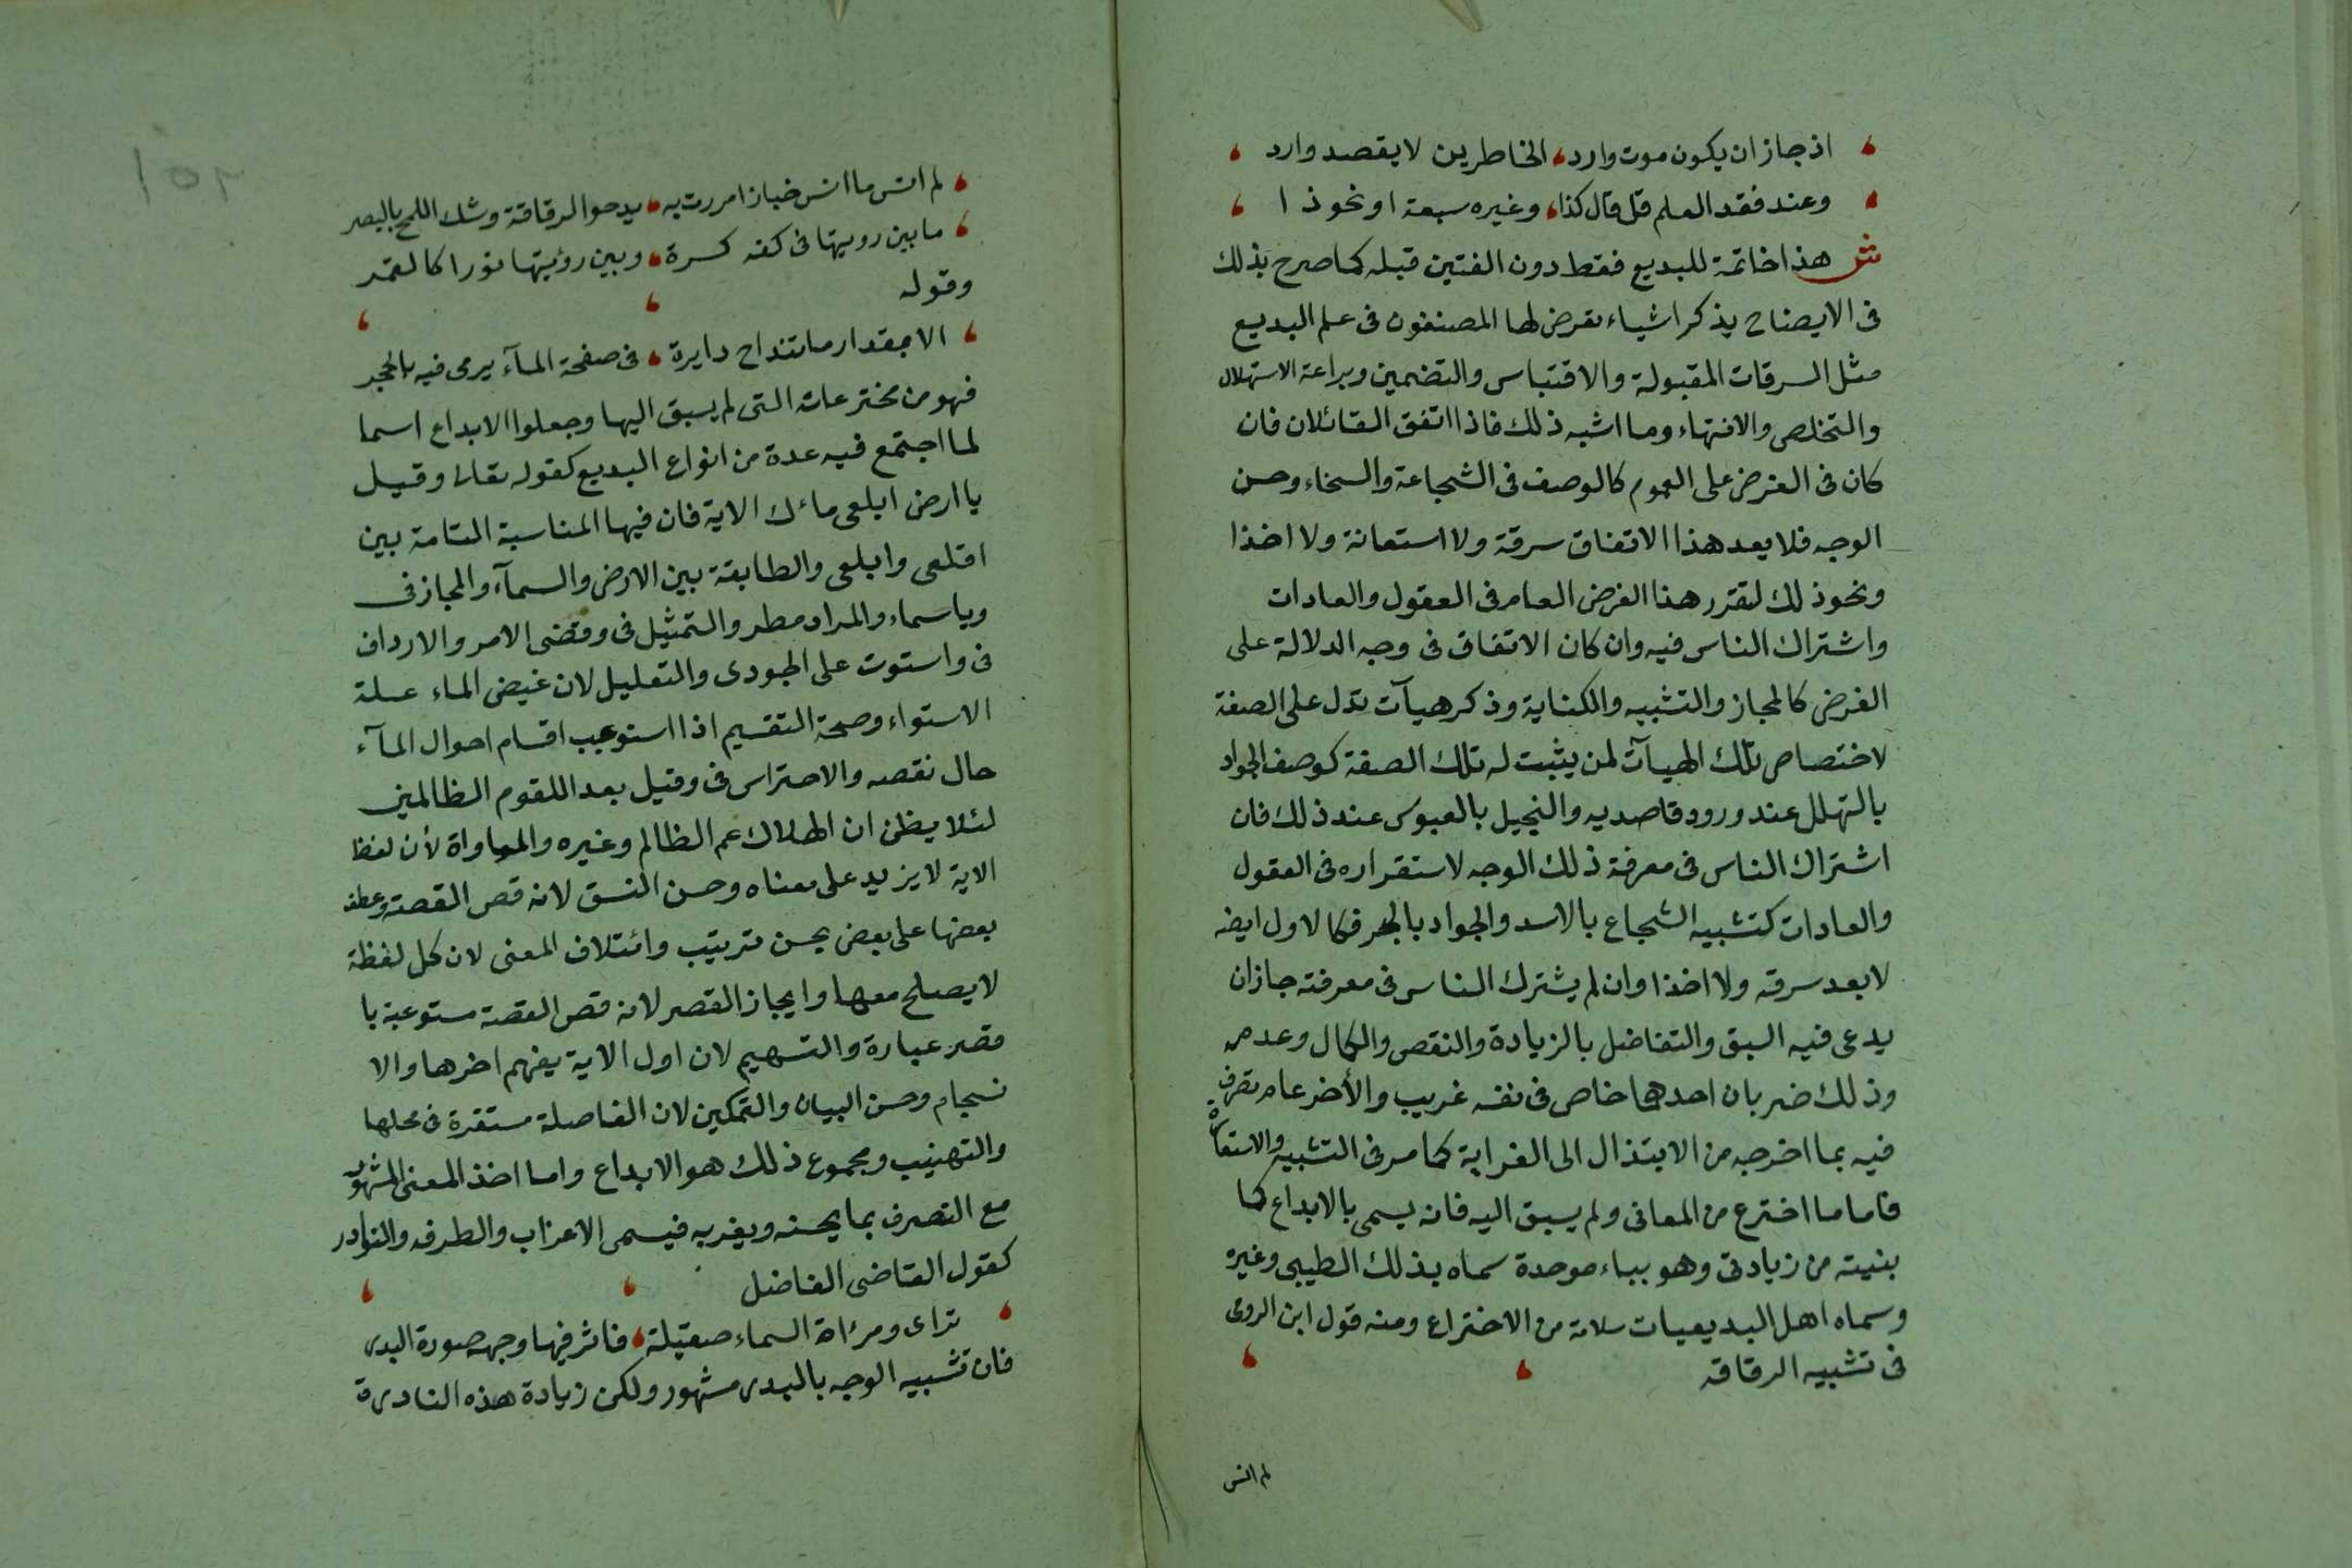 ، اذ جاز ان يكون موت وارد، الخاطرين لا يقصد وارد ،
، وعند فقد العلم قل قال كذا، وغيره سبعة او نحو ذا ،
ش هذا خاتمة للبديع فقط دون الفنين قبله كما صرح بذلك
فى الايضاح يذكر اشياء تعرض لها المصنفون فى علم البديع
مثل السرقات المقبولة والاقتباس والتضمين وبراعة الاستهلال
والتخلص والانتهاء وما اشبه ذلك فاذا اتفق القائلان فان
كان فى الغرض على العموم كالوصف فى الشجاعة والسخاء وحسن
الوجه فلا يعد هذا الاتفاق سرقة ولا استعانة ولا اخذا
ونحو ذلك لتقرر هذا الغرض العام فى العقول والعادات
واشتراك الناس فيه وان كان الاتفاق فى وجه الدلالة على
الغرض كالمجاز والتشبيه والكناية وذكر هيآت تدل على الصفة
لاختصاص تلك الهيآت لمن يثبت له تلك الصفة كوصف الجواد
بالتهلل عند ورود قاصديه والبخيل بالعبوس عند ذلك فان
اشتراك الناس فى معرفة ذلك الوجه لاستقراره فى العقول
والعادات كتشبيه الشجاع بالاسد والجواد بالبحر فكالاول ايضه
لا يعد سرقه ولا اخذا وان لم يشترك الناس فى معرفته جاز ان
يدعى فيه السبق والتفاضل بالزيادة والنقص والكمال وعدمه
وذلك ضربان احدهما خاص فى نفسه غريب والأخر عام تصرف
فيه بما اخرجه من الابتذال الى الغرابة كما مر فى التشبيه والاستعارة
فاما ما اخترع من المعانى ولم يسبق اليه فانه يسمى بالابداع كما
بنيته من زيادتى وهو بباء موحدة سماه بذلك الطيبى وغيره
وسماه اهل البديعيات سلامة من الاختراع ومنه قول ابن الرومى
فى تشبيه الرقاقه
لم انس
١٥٢
، لم انس ما انس خبازا مررت به، يدحوا الرقاقة وشك اللمح بالبصر
، ما بين رويتها فى كفه كسرة، وبين رؤيتها نورا كالقمر
وقوله
، الا بمقدار ما تنداح دايرة، فى صفحة المآء يرمى فيه بالحجر
فهو من مخترعاته التى لم يسبق اليها وجعلوا الابداع اسما
لما اجتمع فيه عدة من انواع البديع كقوله تعالى وقيل
يا ارض ابلعى ماءك الاية فان فيها المناسبة التامة بين
اقلعى وابلعى والطابقة بين الارض والسمآء والمجاز فى
ويا سماء والمراد مطر والتمثيل فى وقضى الامر والارداف
فى واستوت على الجودى والتعليل لان غيض الماء علة
الاستواء وصحة التقسيم اذا استوعب اقسام احوال المآء
حال نقصه والاحتراس فى وقيل بعدا للقوم الظالمين
لئلا يظن ان الهلاك عم الظالم وغيره والمساواة لأن لفظ
الاية لا يزيد على معناه وحسن النسق لانه قص القصة وعطف
بعضها على بعض بحسن ترتيب وائتلاف المعنى لان كل لفظة
لا يصلح معها وايجاز القصر لانه قص القصة مستوعبة با
قصر عبارة والتسهيم لان اول الاية يفهم اخرها والا
نسجام وحسن البيان والتمكين لان الفاصلة مستقرة فى محلها
والتهذيب ومجموع ذلك هو الابداع واما اخذ المعنى المشهور
مع التصرف بما يحسنه ويغربه فيسمى الاغراب والطرفه والنوادر
كقول القاضى الفاضل
، تراى ومرءاة السماء صقيلة، فاثر فيها وجهه صورة البدر
فان تشبيه الوجه بالبدر مشهور ولكن زيادة هذه النادرة